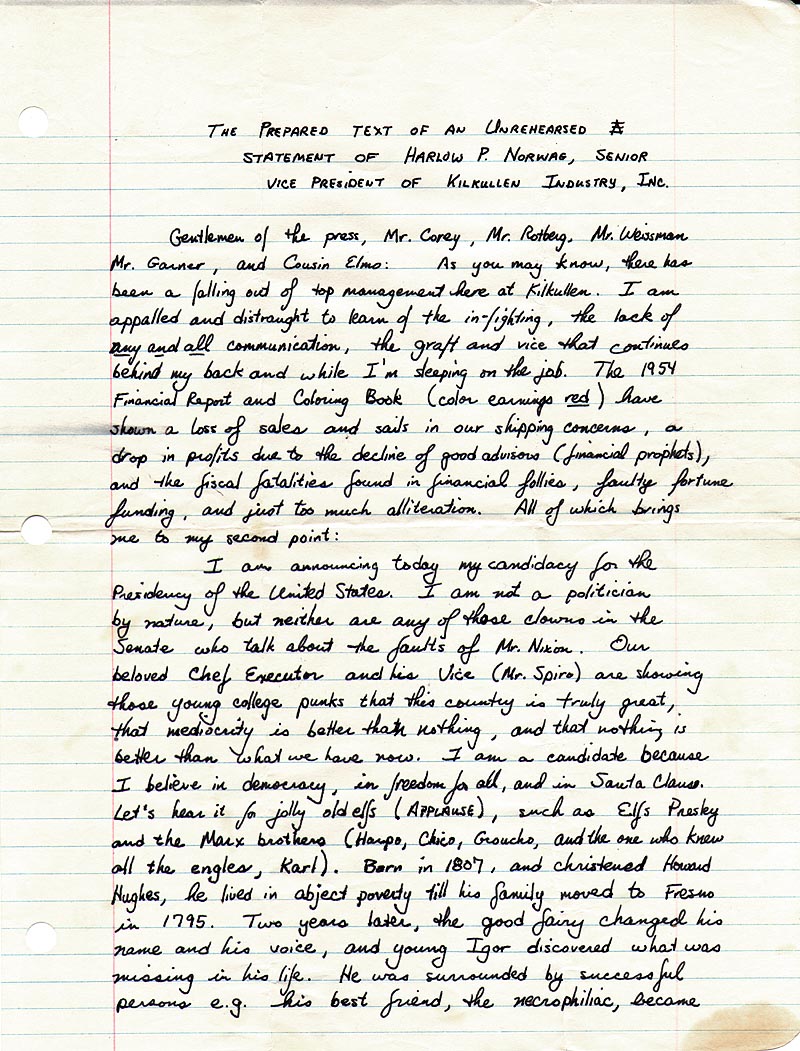 THE PREPARED TEXT OF AN UNREHEARSED
STATEMENT OF HARLOW P. NORWAG, SENIOR
VICE PRESIDENT OF KILKULLEN INDUSTRY, INC.
Gentlemen of the press, Mr. Corey, Mr. Rotberg, Mr. Weissman
Mr. Garner, and Cousin Elmo: As you may know, there has
been a falling out of top management here at Kilkullen. I am
appalled and distraught to learn of the in-fighting, the lack of
any and all communication, the graft and vice that continues
behind my back and while I'm sleeping on the job. The 1954
Financial Report and Coloring Book (color earnings red) have
shown a loss of sales and sails in our shipping concerns, a
drop in profits due to the decline of good advisors (financial prophets),
and the fiscal fatalities found in financial follies, faulty fortune
funding, and just too much alliteration. All of which brings
me to my second point:
I am announcing today my candidacy for the
Presidency of the United States. I am not a politician
by nature, but neither are any of those clowns in the
Senate who talk about the faults of Mr. Nixon. Our
beloved Chef Executor and his Vice (Mr. Spiro) are showing
those young college punks that this country is truly great,
that mediocrity is better than nothing, and that nothing is
better than what we have now. I am a candidate because
I believe in democracy, in freedom for all, and in Santa Clause.
Let's hear it for jolly old elfs (APPLAUSE), such as Elfs Presley
and the Marx brothers (Harpo, Chico, Groucho, and the one who knew
all the engles, Karl). Born in 1807, and christened Howard
Hughes, he lived in abject poverty till his family moved to Fresno
in 1795. Two years later, the good fairy changed his
name and his voice, and young Igor discovered what was
missing in his life. He was surrounded by successful
persons e.g. his best friend, the necrophiliac, became